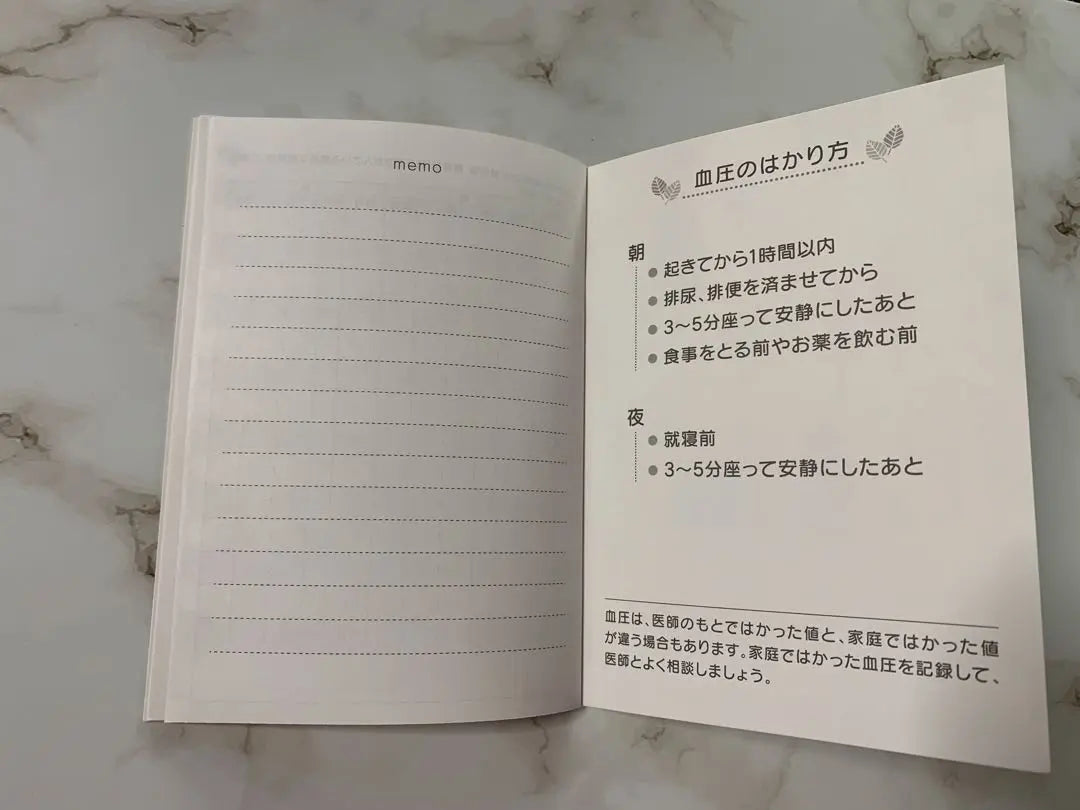 memo
血圧のはかり方
朝
●起きてから1時間以内
●排尿、排便を済ませてから
●3～5分座って安静にしたあと
●食事をとる前やお薬を飲む前
夜
●就寝前
●3～5分座って安静にしたあと
血圧は、医師のもとではかった値と、家庭ではかった値
が違う場合もあります。家庭ではかった血圧を記録して、
医師とよく相談しましょう。